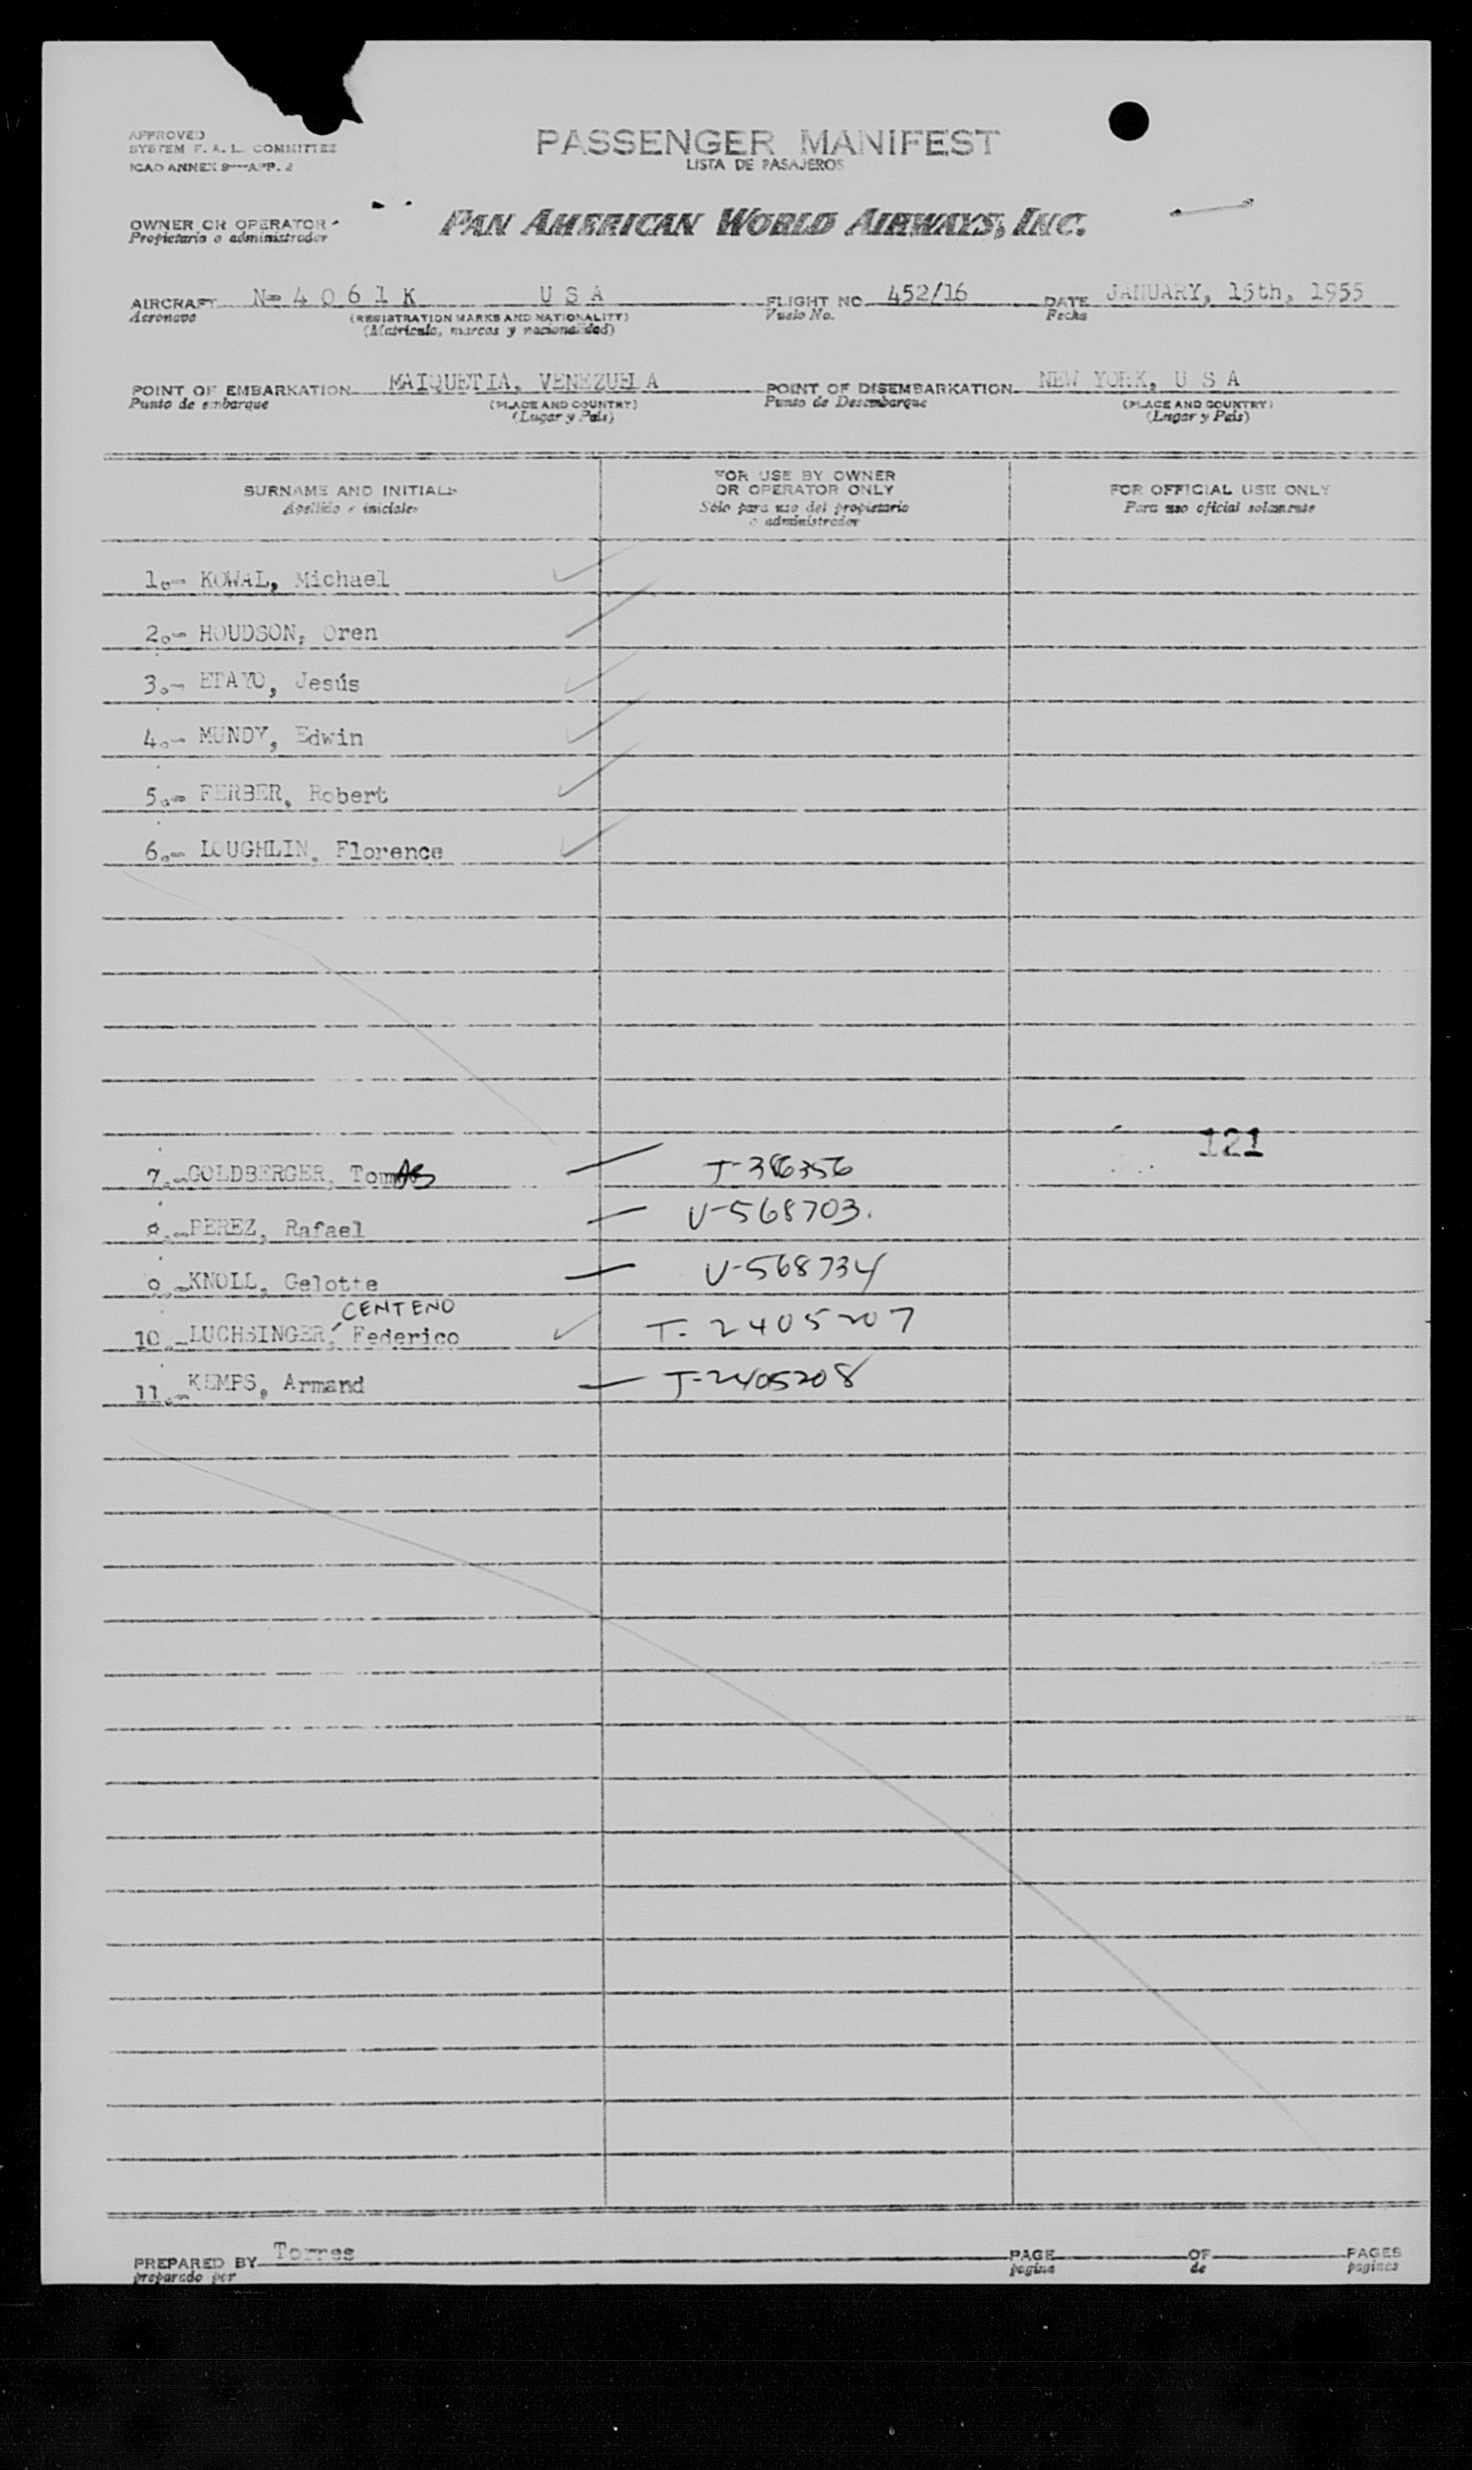 APPROVED
SYSTEM F. A. L. COMMITTEE
ICAO ANNEX 9—APP. 2
PASSENGER MANIFEST
LISTA DE PASAJEROS
OWNER OR OPERATOR
Propietario o administrador
PAN AMERICAN WORLD AIRWAYS, INC.
AIRCRAFT N- 4 0 6 1 K U S A FLIGHT NO. 452/16 DATE JANUARY, 15th, 1955
Aeronave (REGISTRATION MARKS AND NATIONALITY) Vuelo No. Fecha
(Matrícula, marcas y nacionalidad)
POINT OF EMBARKATION MAIQUETIA, VENEZUELA POINT OF DISEMBARKATION NEW YORK, U S A
Punto de embarque (PLACE AND COUNTRY) Punto de Desembarque (PLACE AND COUNTRY)
(Lugar y País) (Lugar y País)
SURNAME AND INITIALS
Apellido e iniciales
FOR USE BY OWNER
OR OPERATOR ONLY
Sólo para uso del propietario
o administrador
FOR OFFICIAL USE ONLY
Para uso oficial solamente
1.- KOWAL, Michael
2.- HOUDSON, Oren
3.- ETAYO, Jesús
4.- MUNDY, Edwin
5.- FERBER, Robert
6.- LOUGHLIN, Florence
121
7.-GOLDBERGER, Tomas T-386356
8.-PEREZ, Rafael V-568703.
9.-KNOLL, Gelotte V-568734
CENTENO
10.-LUCHSINGER, Federico T-2405207
11.-KEMPS, Armand T-2405208
PREPARED BY Torres PAGE OF PAGES
preparado por pagina de paginas